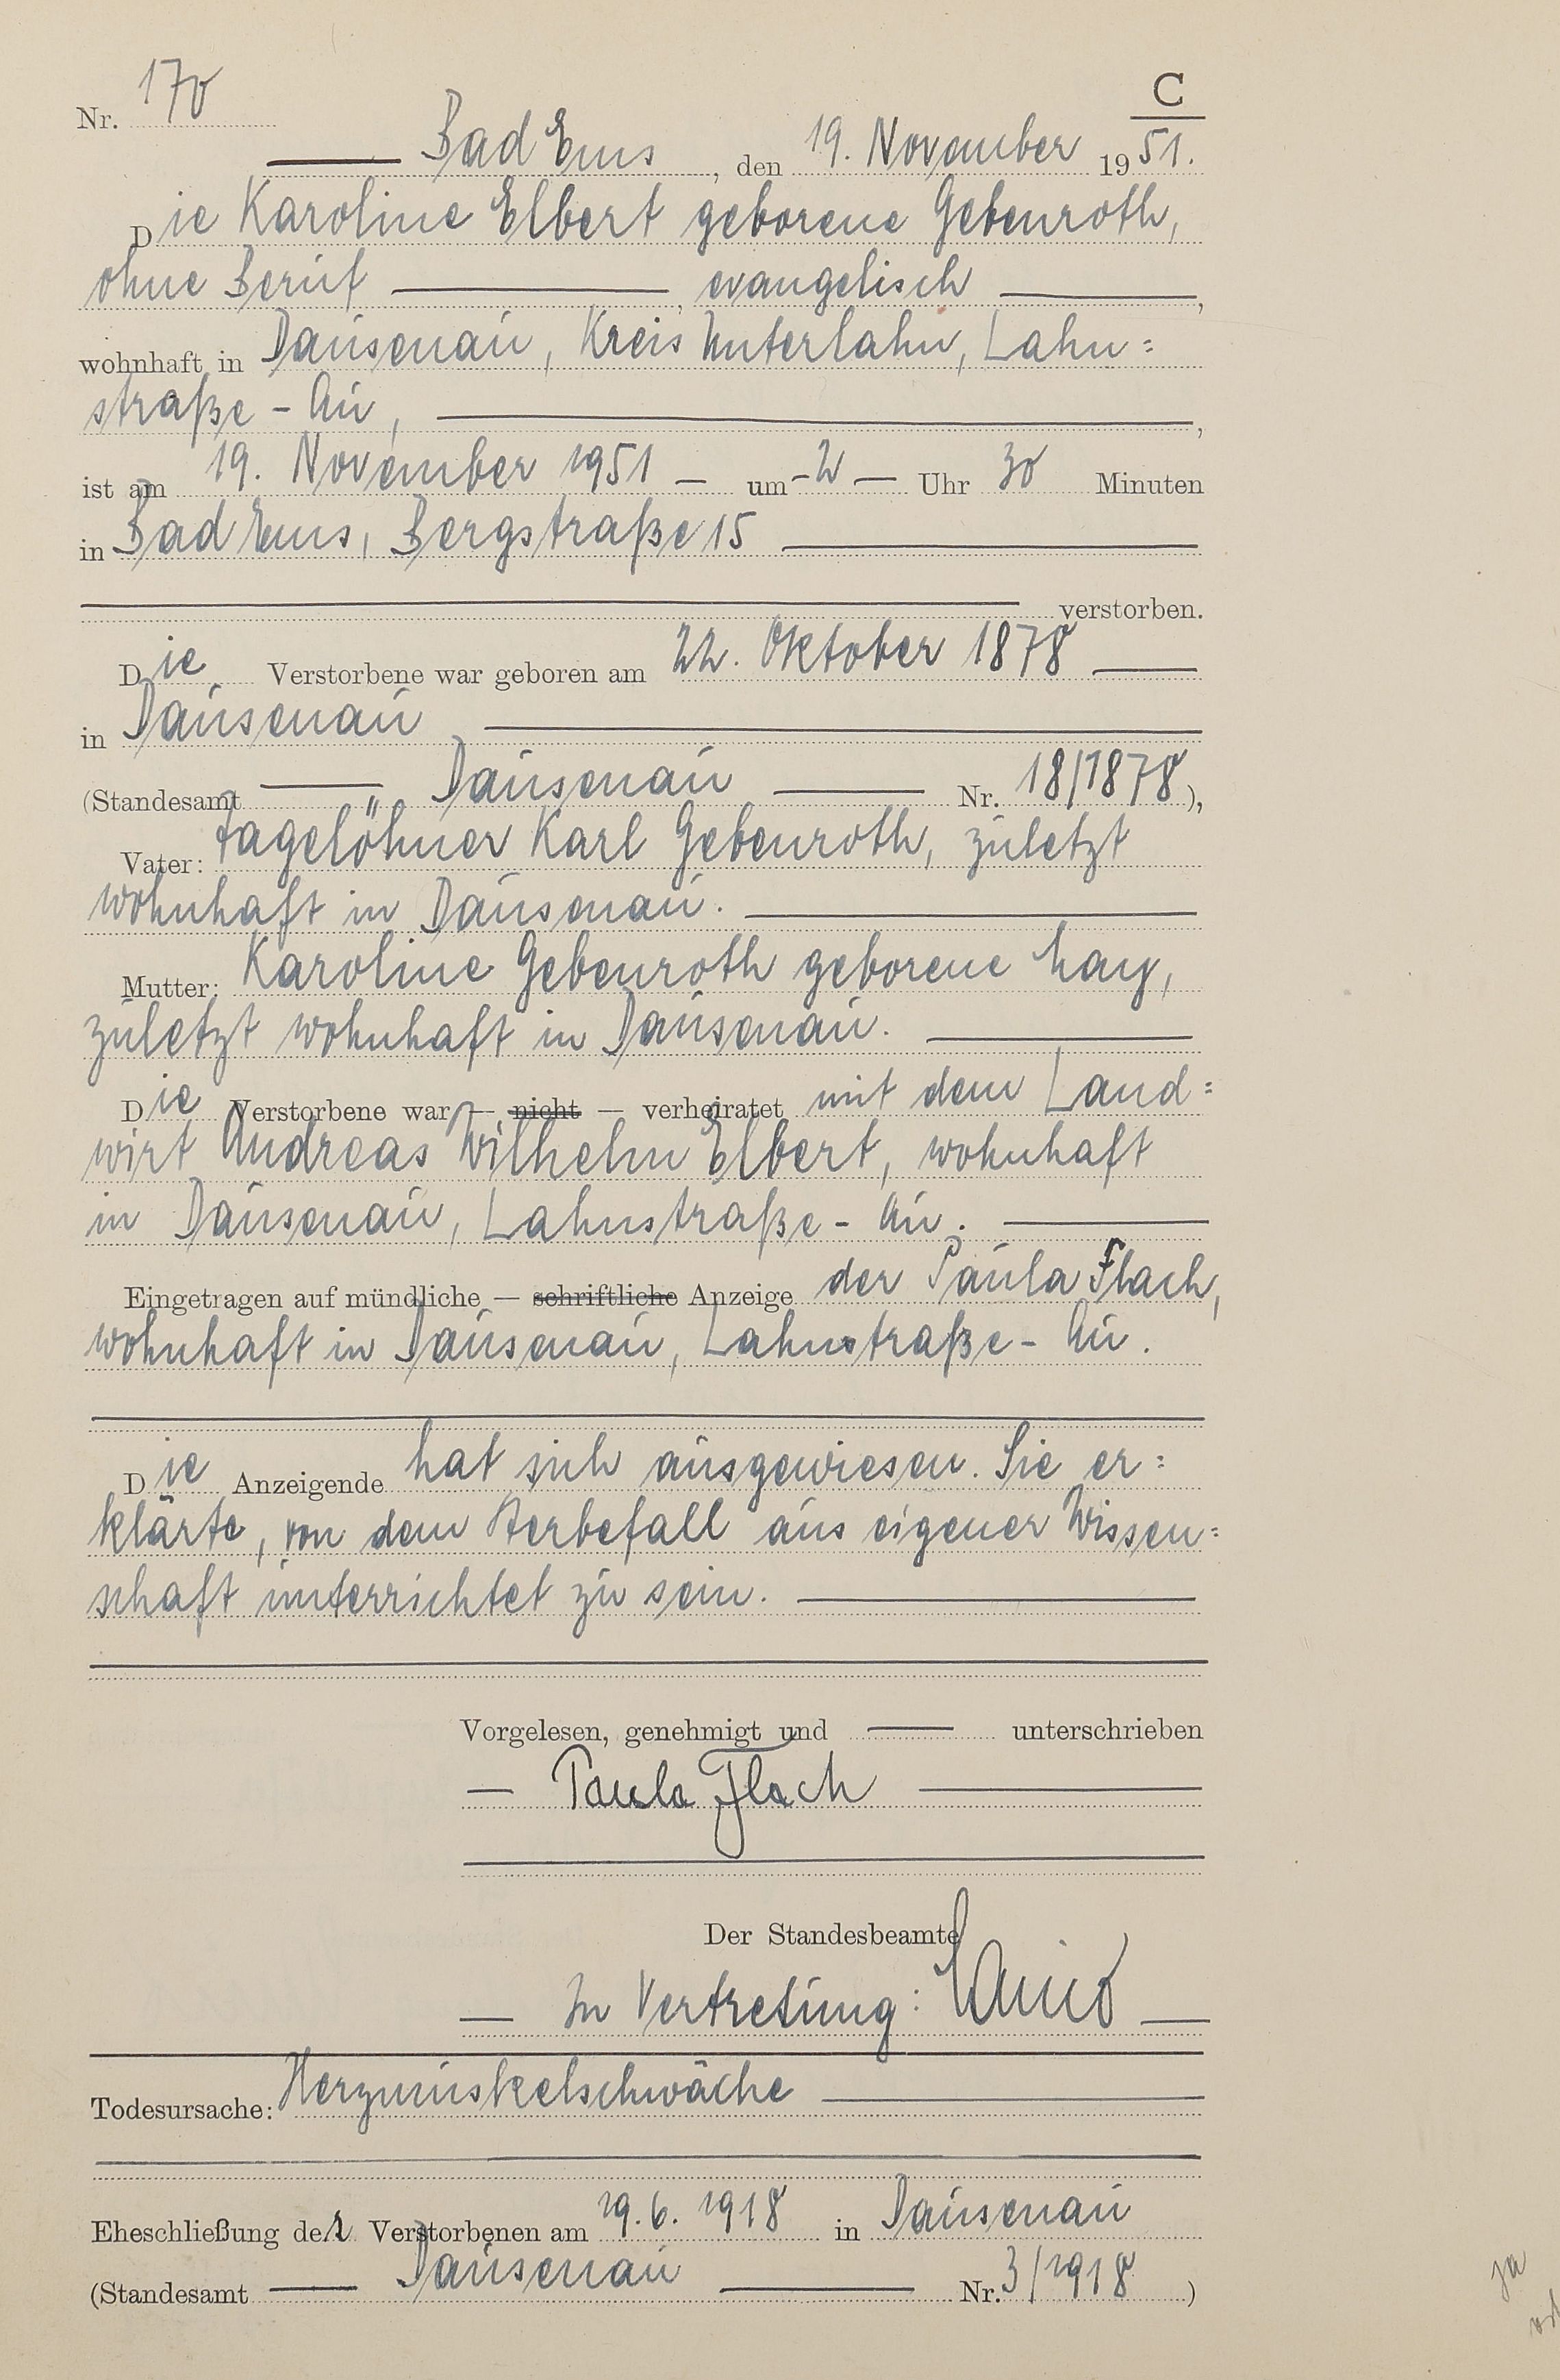 C
Nr. 170
Bad Ems, den 19. November 1951.
Die Karoline Elbert geborene Gebenroth,
ohne Beruf, evangelisch,
wohnhaft in Dausenau, Kreis Unterlahn, Lahn=
straße - Au,
ist am 19. November 1951 — um - 2 — Uhr 30 Minuten
in Bad Ems, Bergstraße 15
verstorben.
Die Verstorbene war geboren am 22. Oktober 1878
in Dausenau
(Standesamt Dausenau Nr. 18/1878),
Vater: Tagelöhner Karl Gebenroth, zuletzt
wohnhaft in Dausenau.
Mutter: Karoline Gebenroth geborene May,
zuletzt wohnhaft in Dausenau.
Die Verstorbene war — nicht — verheiratet mit dem Land=
wirt Andreas Wilhelm Elbert, wohnhaft
in Dausenau, Lahnstraße - Au.
Eingetragen auf mündliche — schriftliche Anzeige der Paula Flach,
wohnhaft in Dausenau, Lahnstraße - Au.
Die Anzeigende hat sich ausgewiesen. Sie er=
klärte, von dem Sterbefall aus eigener Wissen=
schaft unterrichtet zu sein.
Vorgelesen, genehmigt und unterschrieben
Paula Flach
Der Standesbeamte
In Vertretung:
Todesursache: Herzmuskelschwäche
Eheschließung der Verstorbenen am 29.6.1918 in Dausenau
(Standesamt Dausenau Nr. 3/1918)
ja